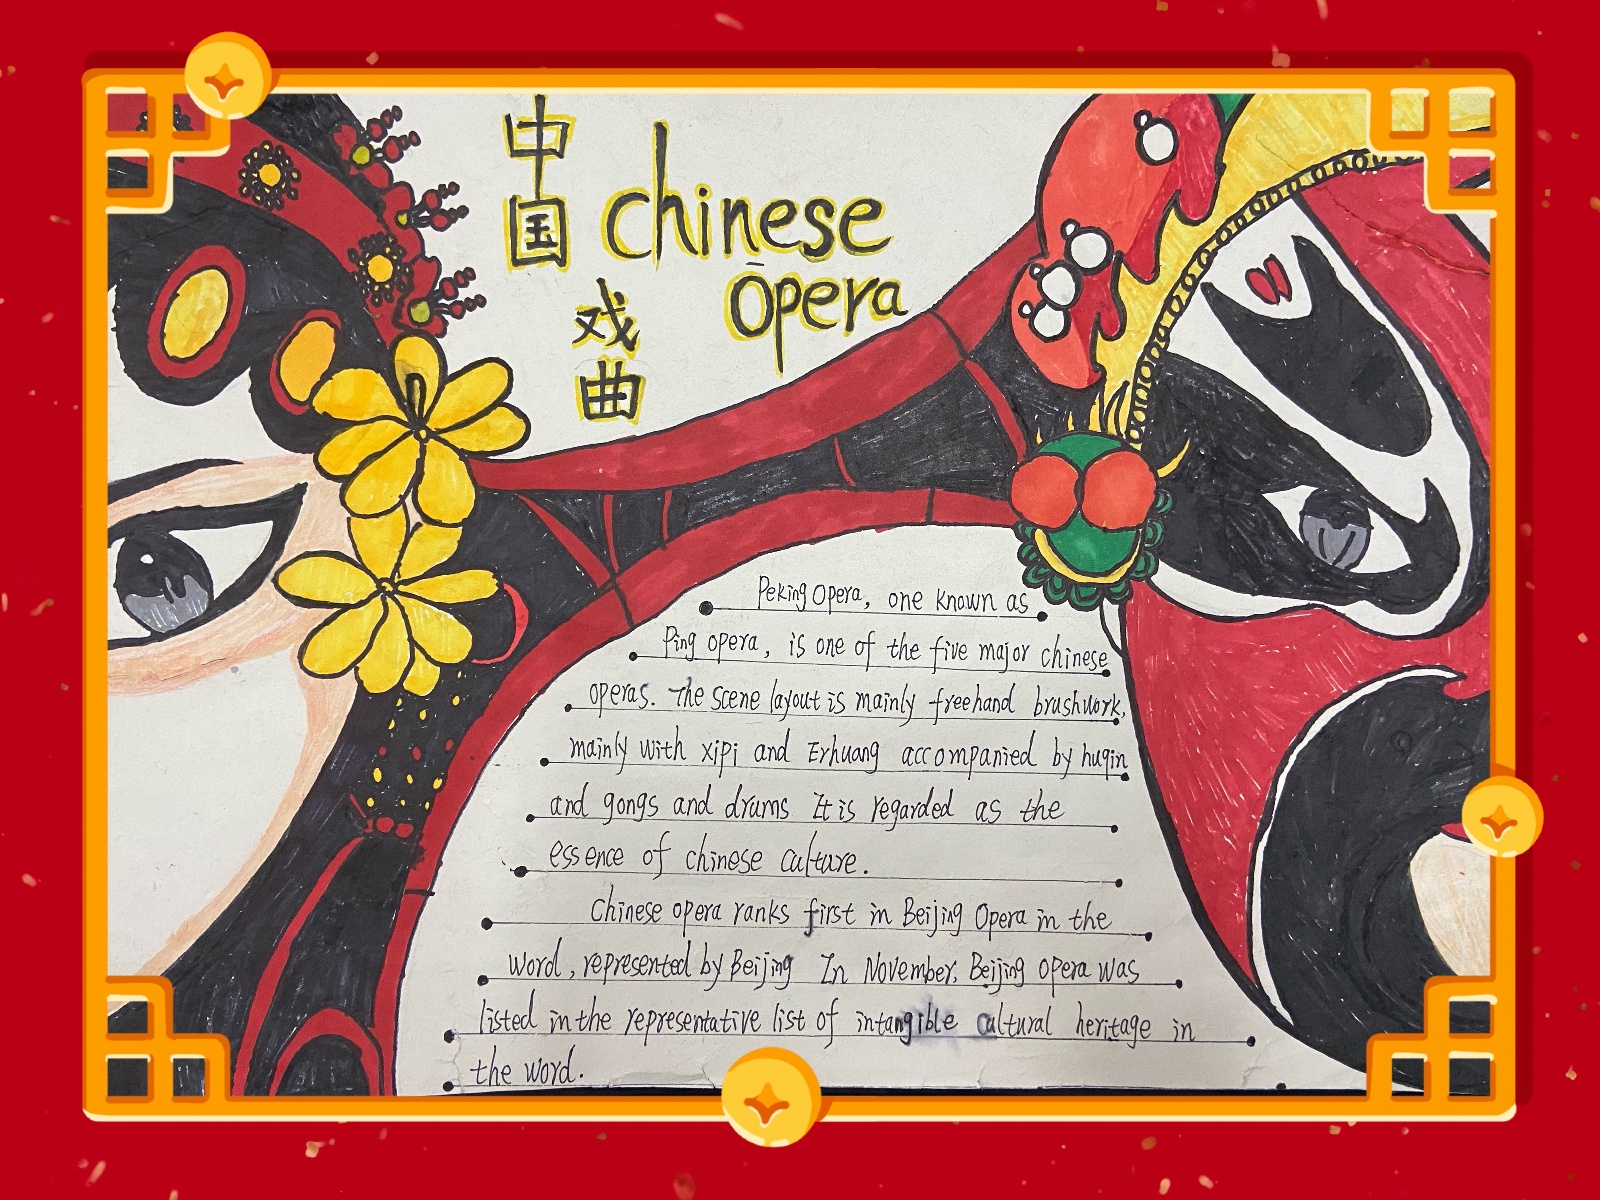 中国
戏曲
chinese
opera
Peking Opera, one known as
Ping opera, is one of the five major chinese
operas. The scene layout is mainly freehand brushwork,
mainly with xipi and Erhuang accompanied by huqin
and gongs and drums It is regarded as the
essence of chinese culture.
Chinese opera ranks first in Beijing Opera in the
word, represented by Beijing In November, Beijing opera was
listed in the representative list of intangible cultural heritage in
the word.